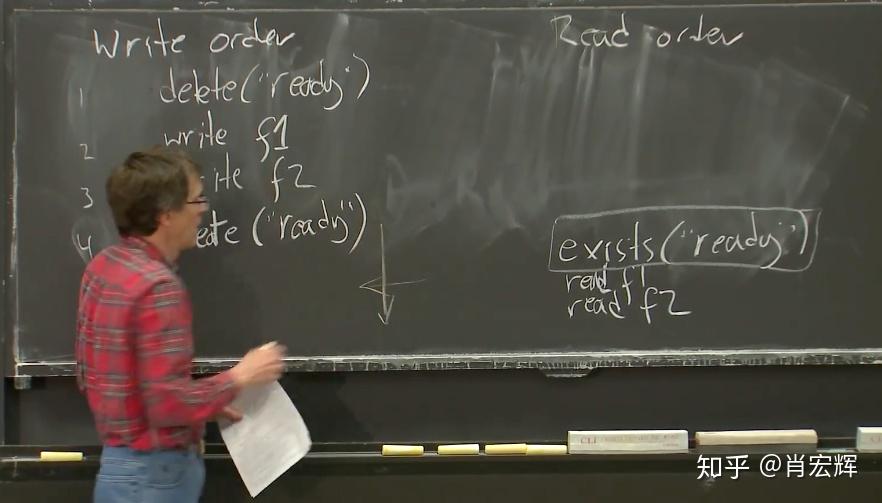 Write order
1 delete("ready")
2 write f1
3 ite f2
4 eate ("ready")
Read order
exists("ready")
read f1
read f2
CLI
知乎 @肖宏辉